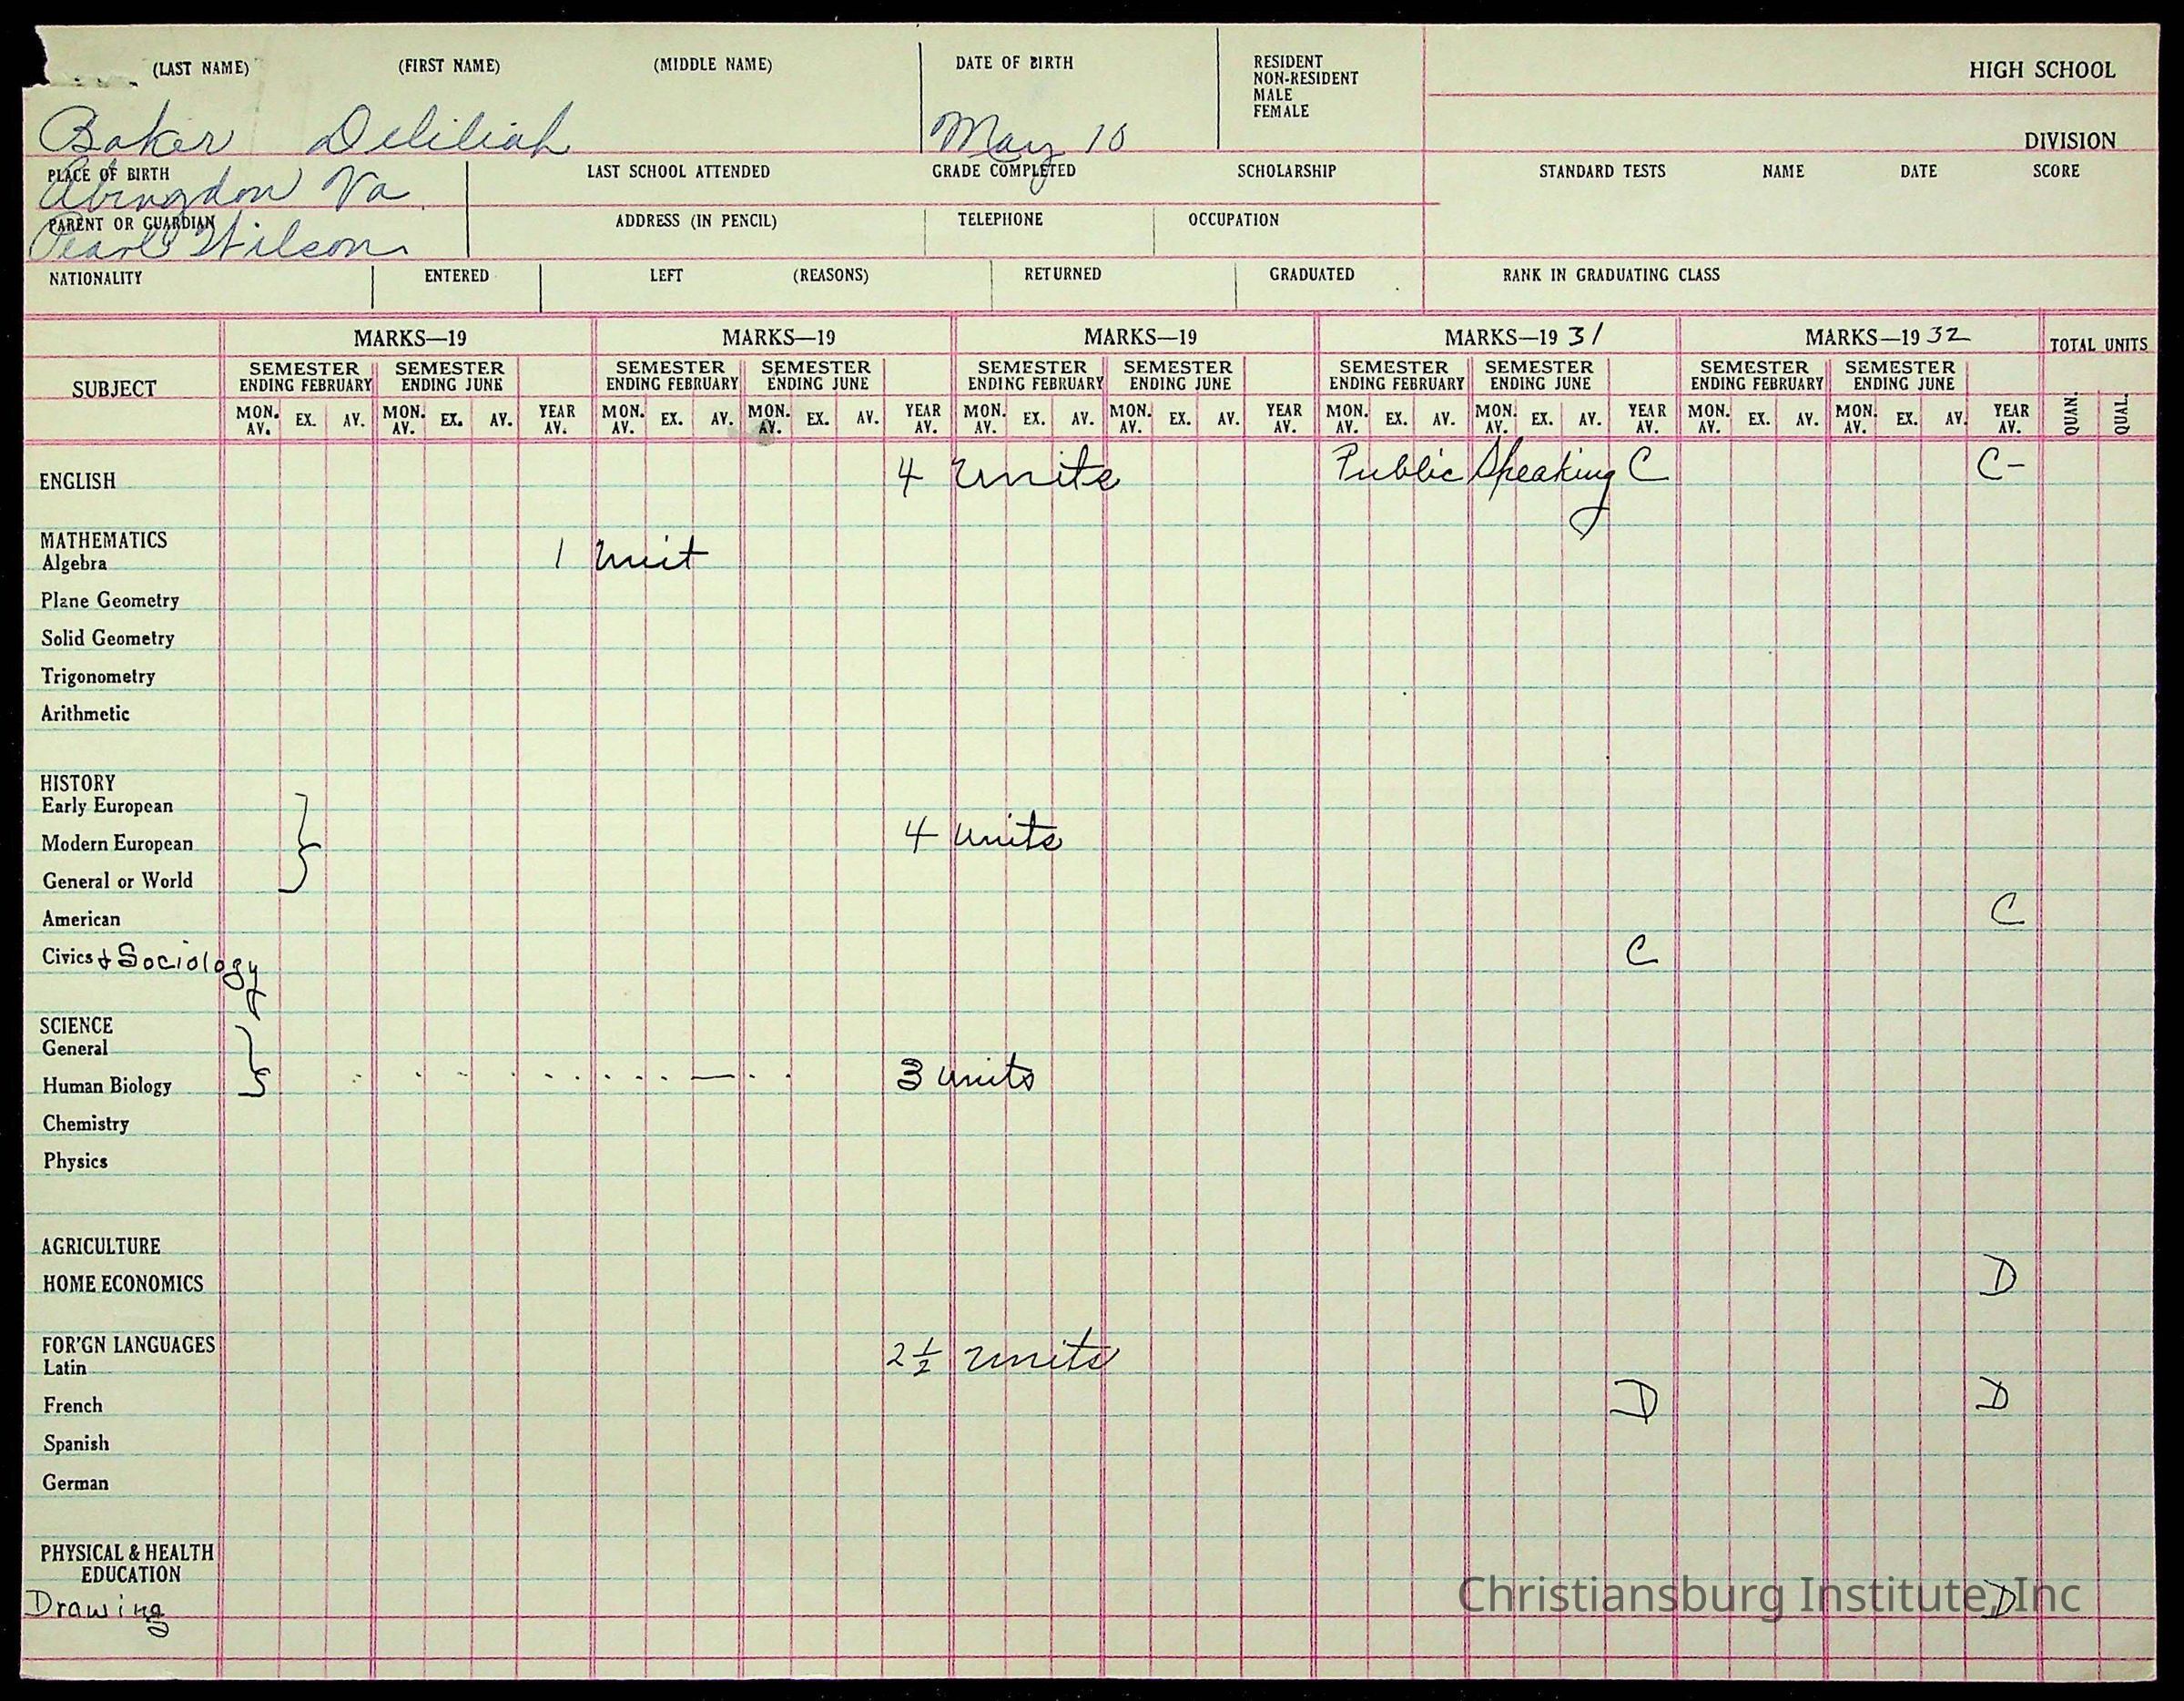 (LAST NAME) (FIRST NAME) (MIDDLE NAME) DATE OF BIRTH RESIDENT HIGH SCHOOL
NON-RESIDENT
MALE
FEMALE
Baker Deliliah May 10 DIVISION
PLACE OF BIRTH LAST SCHOOL ATTENDED GRADE COMPLETED SCHOLARSHIP STANDARD TESTS NAME DATE SCORE
Abingdon Va.
PARENT OR GUARDIAN ADDRESS (IN PENCIL) TELEPHONE OCCUPATION
Pearl Wilson
NATIONALITY ENTERED LEFT (REASONS) RETURNED GRADUATED RANK IN GRADUATING CLASS
MARKS—19 MARKS—19 MARKS—19 MARKS—19 31 MARKS—19 32 TOTAL UNITS
SUBJECT SEMESTER ENDING FEBRUARY SEMESTER ENDING JUNE SEMESTER ENDING FEBRUARY SEMESTER ENDING JUNE SEMESTER ENDING FEBRUARY SEMESTER ENDING JUNE SEMESTER ENDING FEBRUARY SEMESTER ENDING JUNE SEMESTER ENDING FEBRUARY SEMESTER ENDING JUNE
MON. AV. EX. AV. MON. AV. EX. AV. YEAR AV. MON. AV. EX. AV. MON. AV. EX. AV. YEAR AV. MON. AV. EX. AV. MON. AV. EX. AV. YEAR AV. MON. AV. EX. AV. MON. AV. EX. AV. YEAR AV. MON. AV. EX. AV. MON. AV. EX. AV. YEAR AV. QUAN. QUAL.
ENGLISH 4 Units Public Speaking C C-
MATHEMATICS
Algebra 1 Unit
Plane Geometry
Solid Geometry
Trigonometry
Arithmetic
HISTORY
Early European
Modern European 4 units
General or World
American C
Civics & Sociology C
SCIENCE
General
Human Biology 3 units
Chemistry
Physics
AGRICULTURE
HOME ECONOMICS D
FOR'GN LANGUAGES
Latin 2 1/2 units
French D D
Spanish
German
PHYSICAL & HEALTH
EDUCATION
Drawing D
Christiansburg Institute, Inc